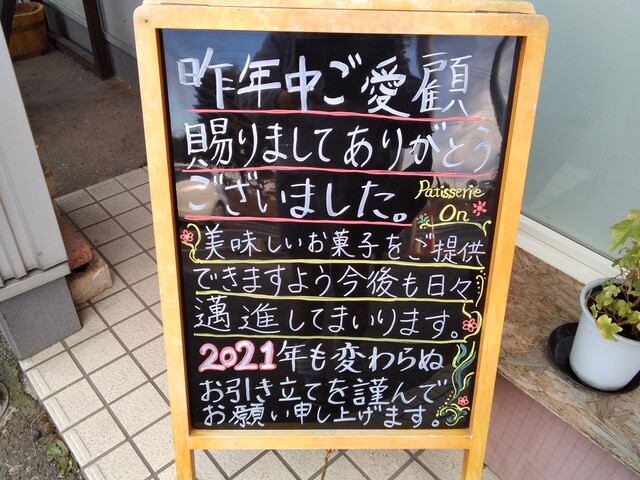 昨年中ご愛顧
賜りましてありがとう
ございました。
Patisserie
On
美味しいお菓子をご提供
できますよう今後も日々
邁進してまいります。
2021年も変わらぬ
お引き立てを謹んで
お願い申し上げます。